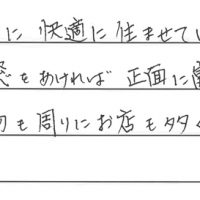 に 快適に住ませてい
窓をあければ 正面に
も周りにお店も多く